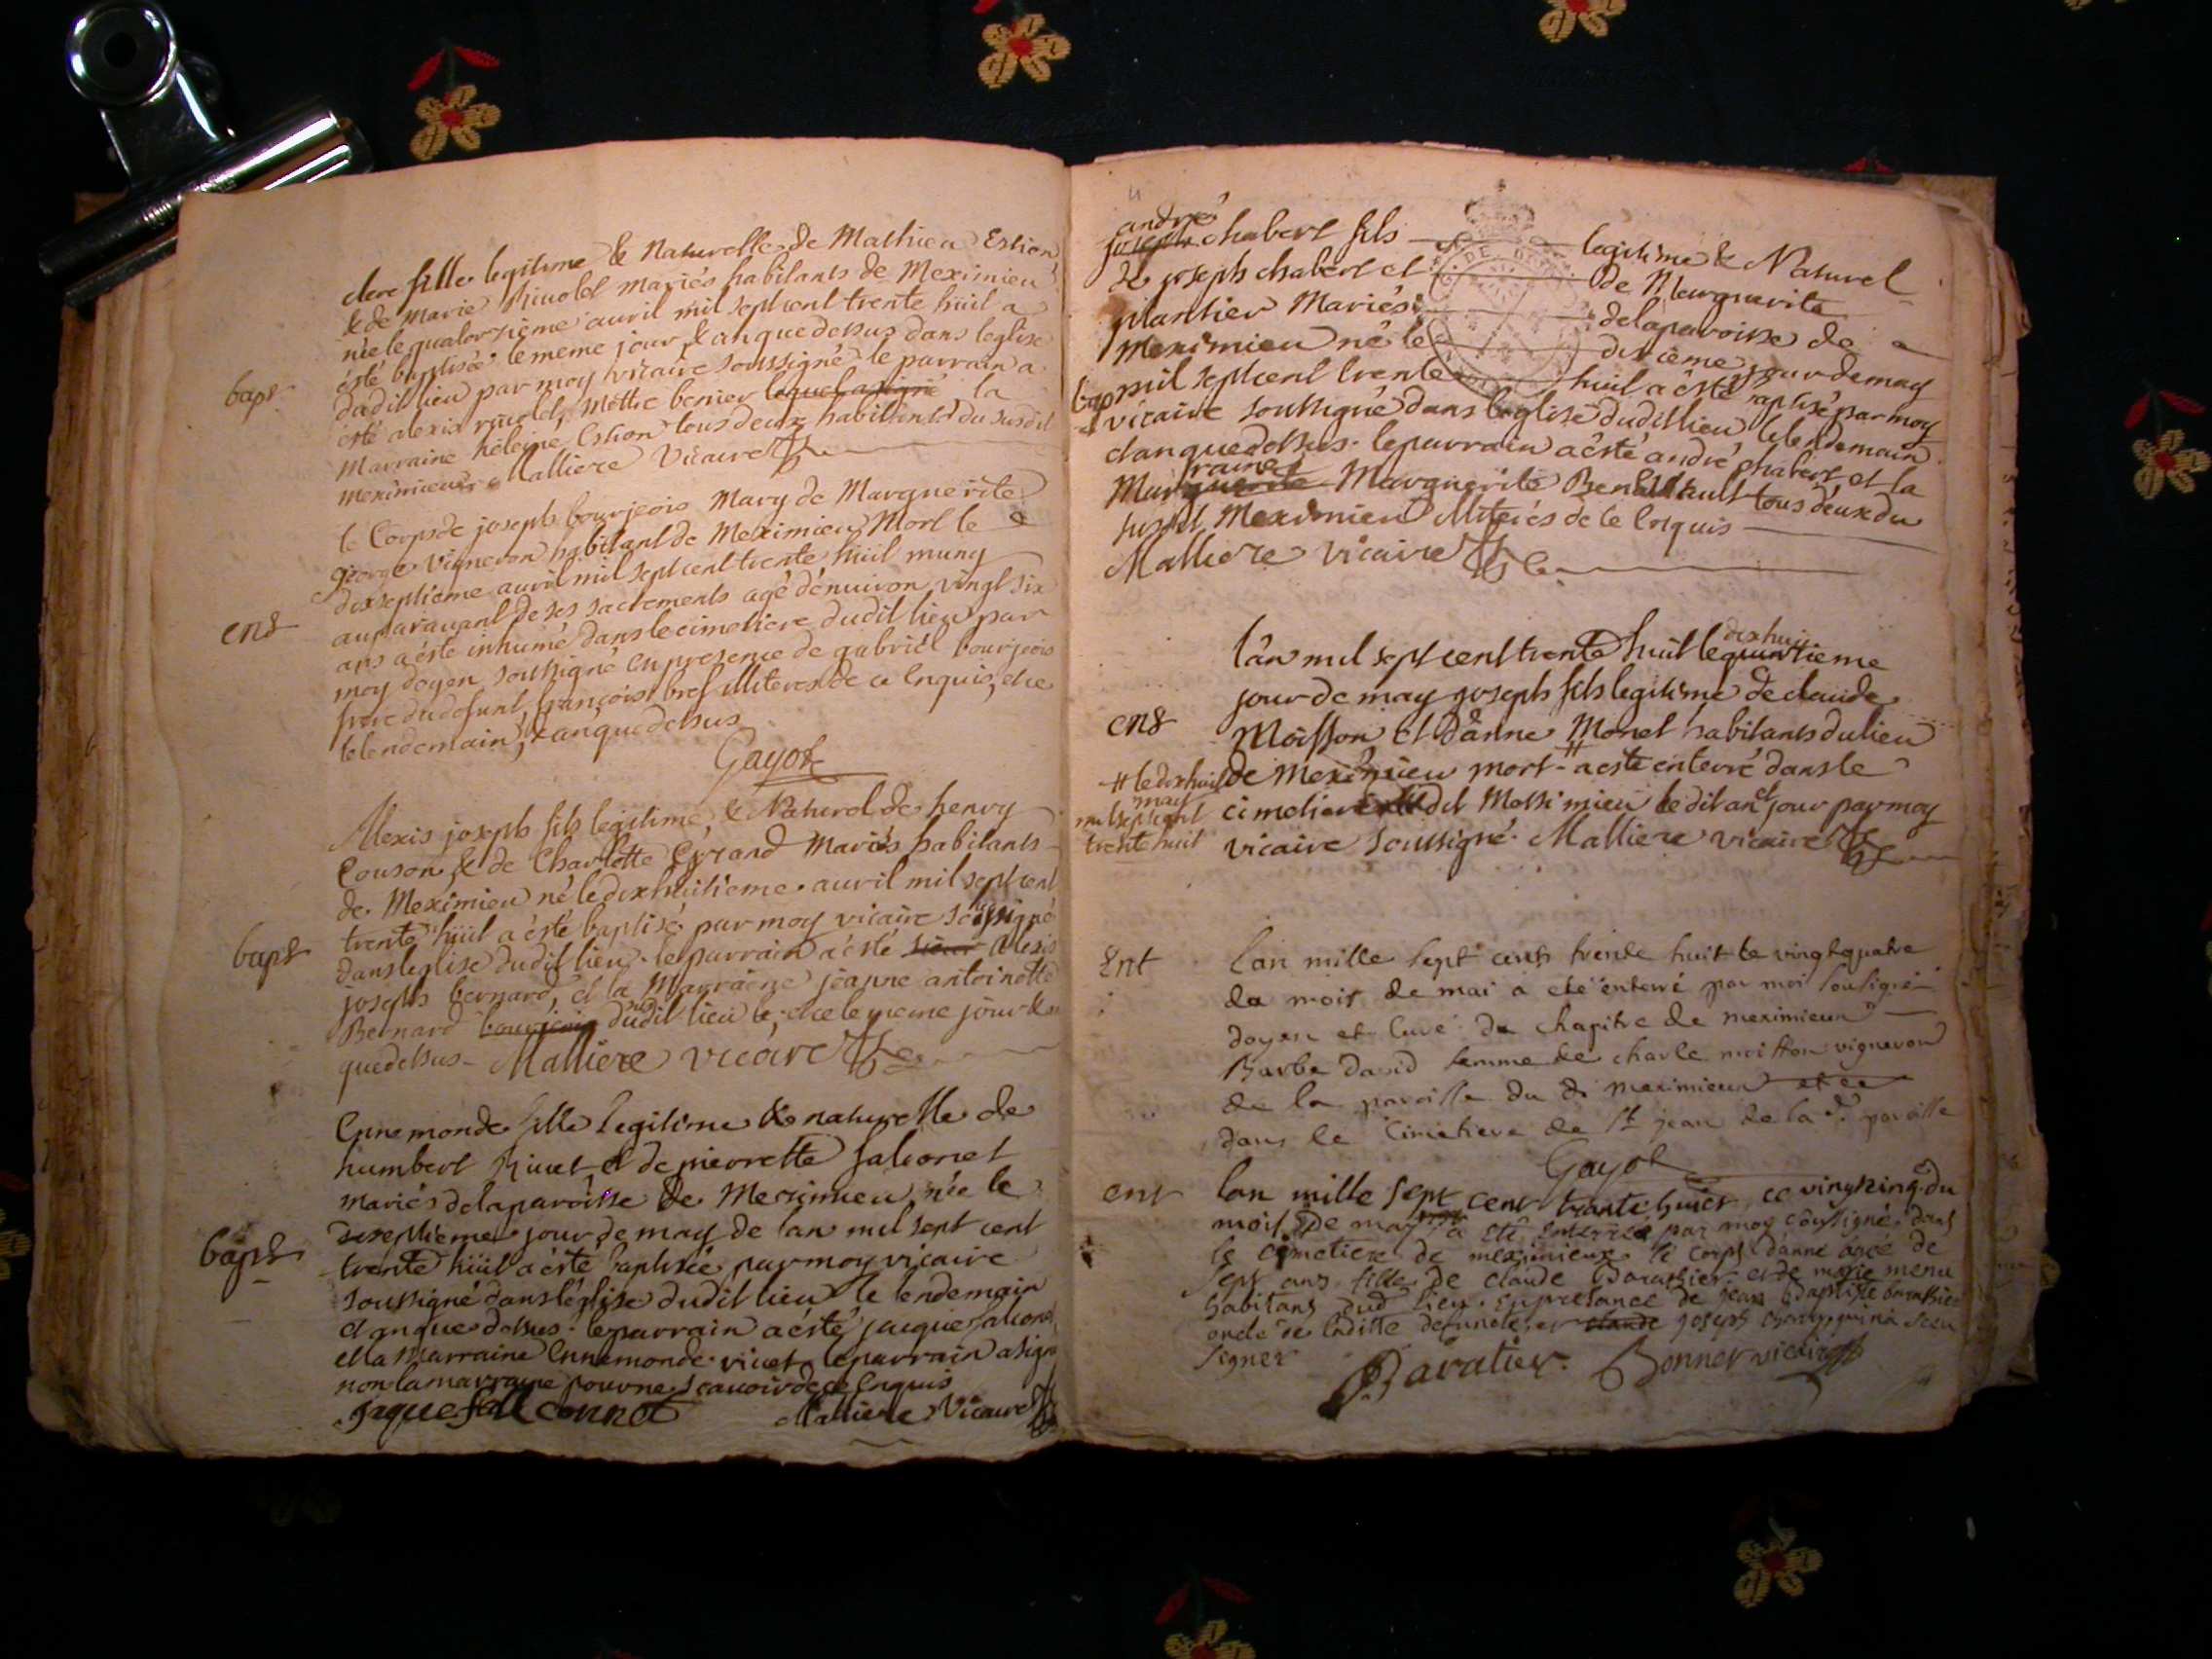 clere fille legitime & Naturelle de Mathieu Estion
& de Marie Riuolet mariés habitants de Meximieu
née le quatorzième auril mil sept cent trente huit a
ésté baptisée le meme jour & an que dessus dans leglise
dudit lieu par moy vicaire soussigné le parrain a
bapt
ésté alexis riuolet, Mettre bernier lequel a signé la
marraine héleine Estion tous deux habitants du susdit
meximieux Malliere Vicaire
le Corps de joseph bourjeois Mary de Marguerite
george Vigneron habitant de Meximieu Mort le
dixseptieme auril mil sept cent trente huit muny
auparauant de ses sacrements agé d'énuiron vingt six
ent
ans a éste inhumé dans le cimetiere dudit lieu par
moy doyen soussigné en presence de gabriél bourjeois
frere du defunt, françois bref illiteres de ce Enquis, et ce
le lendemain, & an que dessus
Gayot
Alexis joseph fils legitime & Naturel de henry
Couson & de Charlotte Gyrand Mariés habitants
de Meximieu né le dixhuitieme auril mil sept cent
trente huit a ésté baptisé par moy vicaire soussigné
bapt
dans leglise dudit lieu. le parrain a ésté sieur Alexis
joseph bernard, et la Marraine jeanne antoinette
Bernard bourjeois dudit lieu et ce le meme jour & an
que dessus - Malliere vicaire
Ennemonde fille legitime & naturelle de
humbert Riuet et de pierrette falconet
mariés de la paroisse de Meximieu, née le
dixseptieme jour de may de lan mil sept cent
bapt
trente huit a ésté baptisée par moy vicaire
soussigné dans l'église dudit lieu le lendemain
et an que dessus. le parrain a ésté jacque falconet
et la Marraine Ennemonde viuet le parrain a signé
non la marraine pour ne scauoir de ce Enquis
Jaque falconnet Malliere Vicaire
andré
joseph chabert fils legitime & Naturel
de joseph chabert et de Marguerite
plantier Mariés de la paroisse de
Meximieu né le dixième jour de may
bapt
mil sept cent trente huit a ésté baptisé par moy
vicaire soussigné dans leglise dudit lieu le lendemain
et an que dessus. le parrain a ésté andré chabert et la
raine
Marguerite Marguerite tous deux du
susdit Meximieu illiterés de ce Enquis
Malliere vicaire
dixhuit
lân mil sept cent trente huit le quintieme
jour de may joseph fils legitime de claude
ent
Moisson et d'anne Monet habitants du lieu
# le dixhuit
de Meximieu mort # a esté enterré dans le
may
mil sept cent
cimetiere dudit Messimieu le dit an et jour par moy
trente huit
vicaire soussigné. Malliere vicaire
Ent
lan mille sept cents trente huit le vingtquatre
du mois de mai a eté enterré par moi sousigné
doyen et curé du chapitre de meximieux
Barbe david femme de charle moisson vigneron
de la paroisse du dt meximieux et ce
dans le Cimetiere de St jean de la dte paroisse
Gayot
ent
lan mille sept cent trante huict, ce vingtcinq du
mois de may a eté enterrée par moy soussigné dans
le cimetiere de meximieux le corps d'anne agée de
sept ans fille de claude Baratier et de marie menu
habitans dud lieu. En presance de jean Baptiste baratier
oncle de laditte defuncte, et claude joseph qui n'a sceu
signer
Baratier. Bonnet vicaire